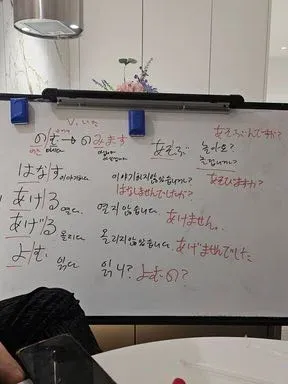 のむ → のみます
あそぶ 놀아요? あそぶんですか?
놀습니까? あそびますか?
はなす 이야기하다 이야기하지 않았습니까?
はなしませんでしたか?
あける 열다. 열지 않습니다. あけません。
あげる 올리다. 올리지 않았습니다. あげませんでした
よむ 읽다. 읽니? よむの?